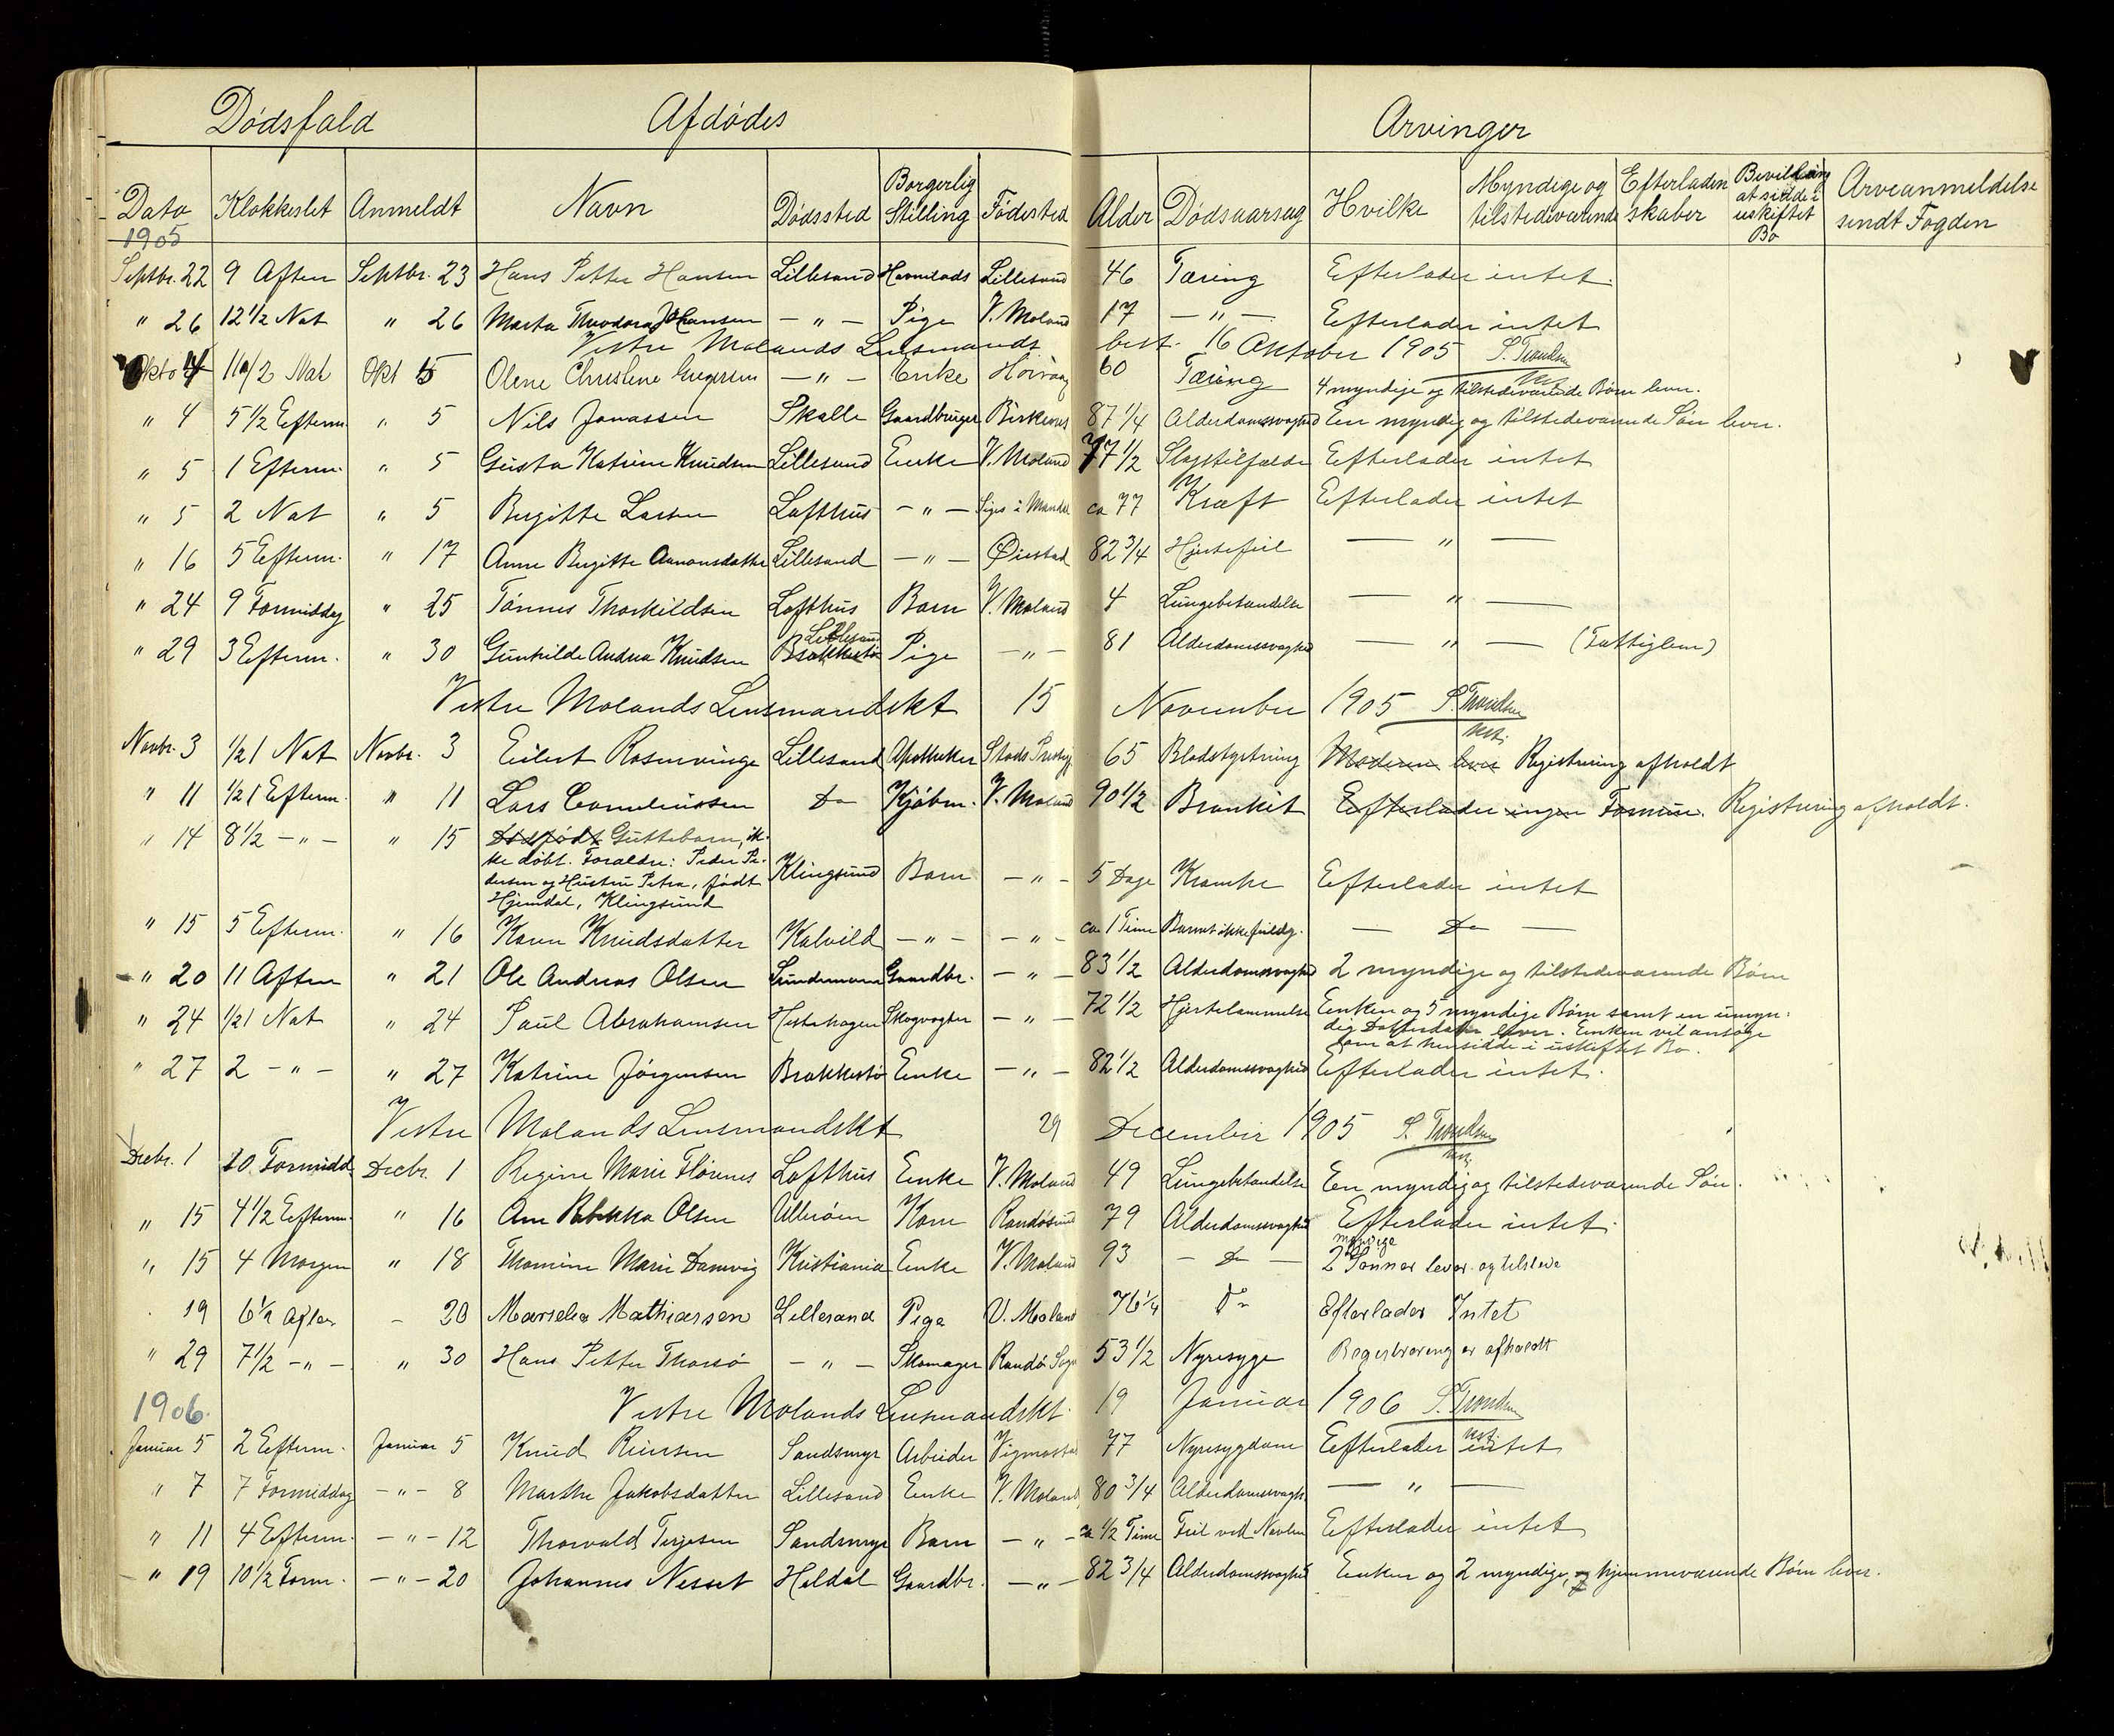 Dødsfald Afdødes Arvinger
Dato Klokkeslet Anmeldt Navn Dødssted Borgerlig Stilling Fødested Alder Dødsaarsag Hvilke Myndige og tilstedeværende Efterladenskaber Bevilling at sidde i uskiftet Bo Arveanmeldelse sendt Fogden
1905
Septbr. 22 9 Aften Septbr. 23 Hans Petter Hansen Lillesand Lillesund 46 Tæring Efterlader intet.
" 26 12 1/2 Nat " 26 Marta Theodora Johansen — " — Pige V. Moland 17 — " — Efterlader intet
Vestre Molands Lensmandsbest. 16 Oktober 1905 S. Trondsen
Okto 4 Nat Okt 5 Olene Christene Gregersen — " — Enke Høivaag 60 Tæring 4 myndige og tilstedeværende Børn lever.
" 4 5 1/2 Efterm. " 5 Nils Jonassen Skalle Gaardbruger Birkenes 87 1/4 Alderdomssvaghed En myndig og tilstedeværende Søn lever.
" 5 1 Efterm. " 5 Gusta Katrine Knudsen Lillesand Enke V. Moland 77 1/2 Slagtilfælde Efterlader intet
" 5 2 Nat " 5 Birgitte Larsen Lofthus — " — ca 77 Kræft Efterlader intet
" 16 5 Efterm. " 17 Anne Birgitte Aanonsdatter Lillesand — " — Øiestad 82 3/4 Hjertefeil — " —
" 24 9 Formiddag " 25 Tønnes Thorkildsen Lofthus Barn V. Moland 4 Lungebetændelse — " —
" 29 3 Efterm. " 30 Gunhilde Andrea Knudsen Brækkestø Lillesand Pige — " — 81 Alderdomssvaghed — " — (Fattiglem)
Vestre Molands Lensmandskt 15 November 1905 S. Trondsen
Novbr. 3 1/2 1 Nat Novbr. 3 Eilert Rosenvinge Lillesand Apotheker 65 Blodstyrtning Moderen lever Registrering afholdt
" 11 1/2 1 Efterm. " 11 Lars Corneliussen Do Kjøbm. V. Moland 90 1/2 Bronkit Efterlader ingen Formue. Registrering afholdt.
" 14 8 1/2 — " — " 15 Dødfødt Guttebarn, ik-
ke døbt. Forældre: Peder Pe-
dersen og Hustru Petra, født
Hjemdal, Klingsund Klingsund Barn — " — 5 Dage Krampe Efterlader intet
" 15 5 Efterm. " 16 Karen Knudsdatter Kalvild — " — — " — ca 1 Time Barnet ikke fuldbg. — Do —
" 20 11 Aften " 21 Ole Andreas Olsen Gaardbr. — " — 83 1/2 Alderdomssvaghed 2 myndige og tilstedeværende Børn
" 24 1/2 1 Nat " 24 Paul Abrahamsen Hestehagen Skogvogter — " — 72 1/2 Hjertelammelse Enken og 5 myndige Børn samt en umyn-
dig Datterdatter lever. Enken vil ansøge
om at hensidde i uskiftet Bo.
" 27 2 — " — " 27 Katrine Jørgensen Brækkestø Enke — " — 82 1/2 Alderdomssvaghed Efterlader intet.
Vestre Molands Lensmandskt 29 December 1905 S. Trondsen
Decbr. 1 10 Formidd Decbr. 1 Regine Marie Flørenes Lofthus Enke V. Moland 49 Lungebetændelse En myndig og tilstedeværende Søn.
" 15 4 1/2 Efterm. " 16 Ane Rebekka Olsen Ulleröen Kone Randøsund 79 Alderdomssvaghed Efterlader intet.
" 15 4 Morgen " 18 Thomine Marie Danevig Kristiania Enke V. Moland 93 — Do — 2 myndige Sønner lever og tilstede
19 6 1/2 Aften - 20 Marselia Mathiassen Lillesand Pige V. Moland 76 1/4 Do Efterlader Intet
" 29 7 1/2 — " — " 30 Hans Petter Thorsø — " — Skomager Randø Sogn 53 1/2 Nyresyge Registrering er afholdt
1906. Vestre Molands Lensmandskt. 19 Januar 1906 S. Trondsen
Januar 5 2 Efterm. Januar 5 Knud Reiersen Sandsmyr Arbeider Vigmostad 77 Nyresygdom Efterlader intet
" 7 7 Formiddag — " — 8 Marthe Jakobsdatter Lillesand Enke V. Moland 80 3/4 Alderdomssvagh. — " —
" 11 4 Efterm. — " — 12 Thorvald Terjesen Sandsmyr Barn — " — ca 1/2 Time Feil ved Navlen Efterlader intet
" 19 10 1/2 Form. — " — 20 Johannes Nesset Heldal Gaardbr. — " — 82 3/4 Alderdomssvaghed Enken og 2 myndige, hjemmeværende Børn lever.